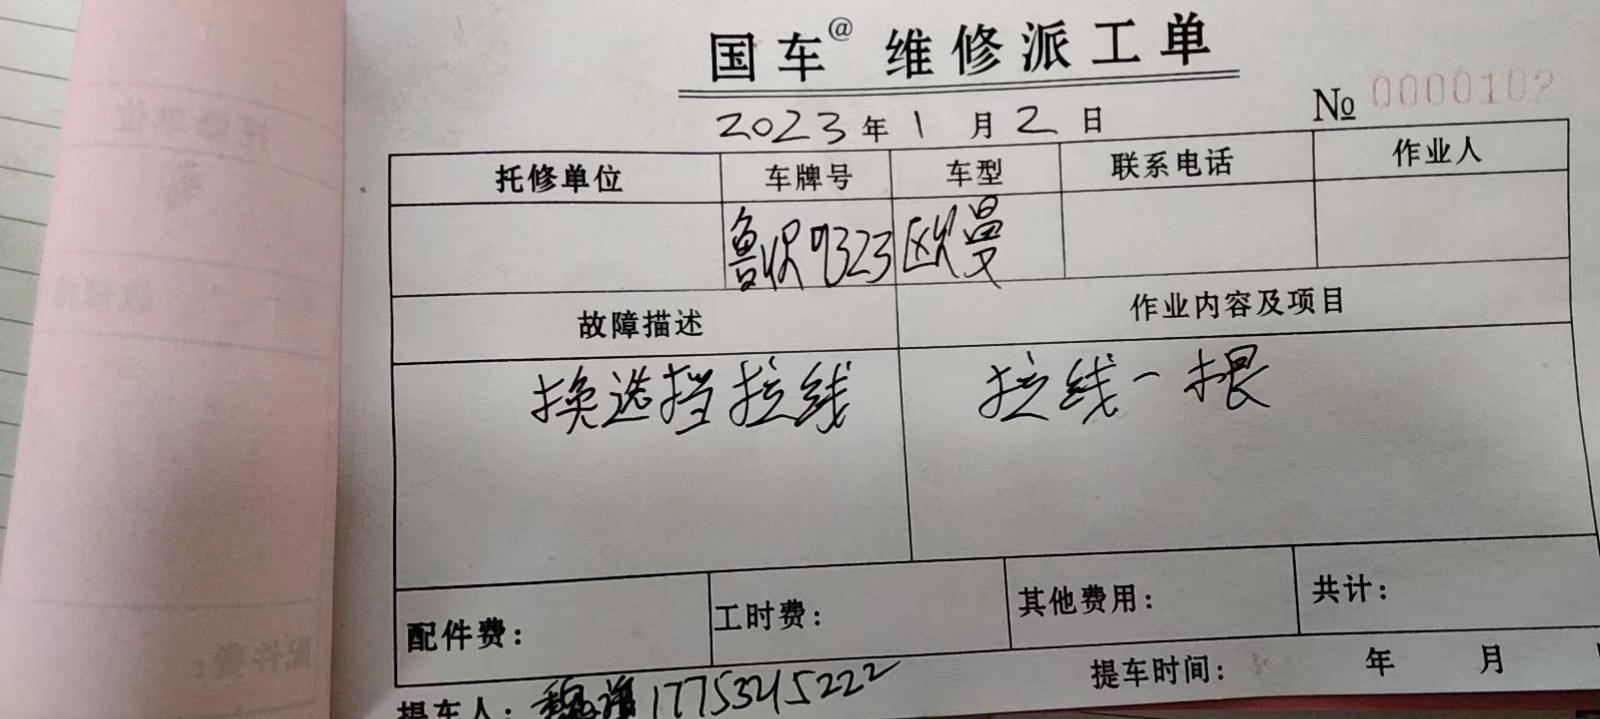 国车@ 维修派工单
No 0000102
2023年1月2日
托修单位 车牌号 车型 联系电话 作业人
9323 欧曼
故障描述 作业内容及项目
换选挡拉线 拉线一根
配件费： 工时费： 其他费用： 共计：
提车人： 17753245222 提车时间： 年 月